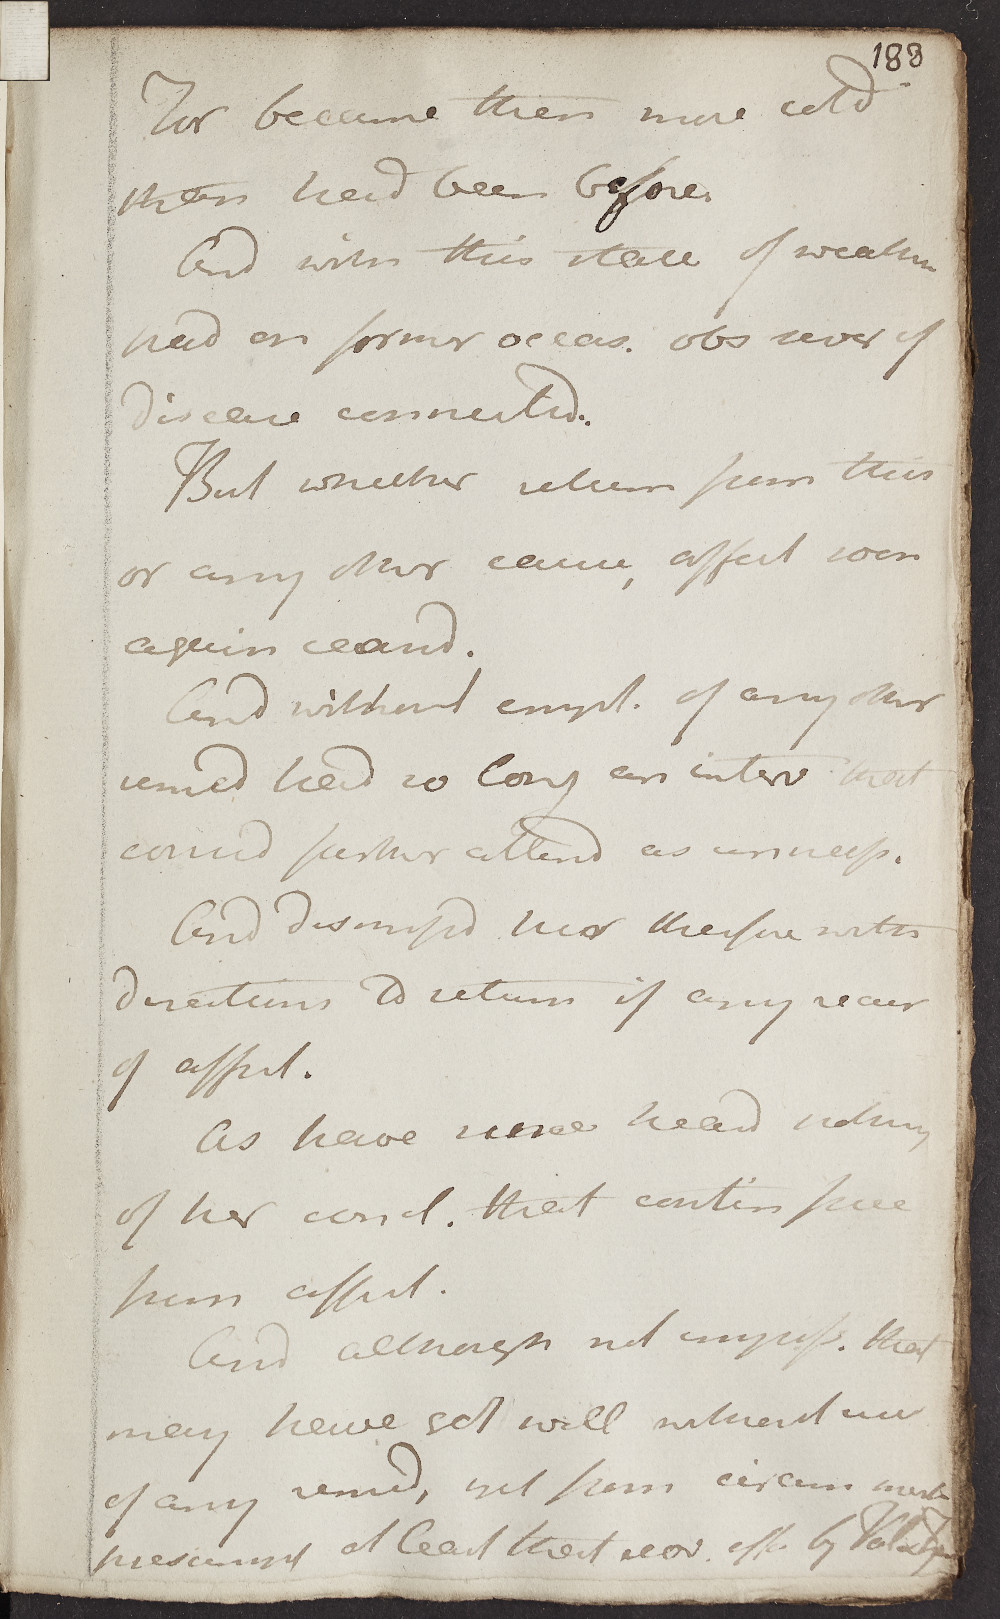 188
For became then more cold
than had been before.
And with this state of weakn
had on former occas. obs sever of
disease connected.
But whether return from this
or any other cause, affect soon
again ceasd.
And without empl. of any other
remed had so long an interv that
consid farther attend as unness.
And dismissd her therefore with
directions to return if any recur
of affect.
As have since heard nothing
of her concl. that contin free
from affect.
And although not imposs. that
may have got well without use
of any remed, yet from circum must
presumpt at least that recov. eff by